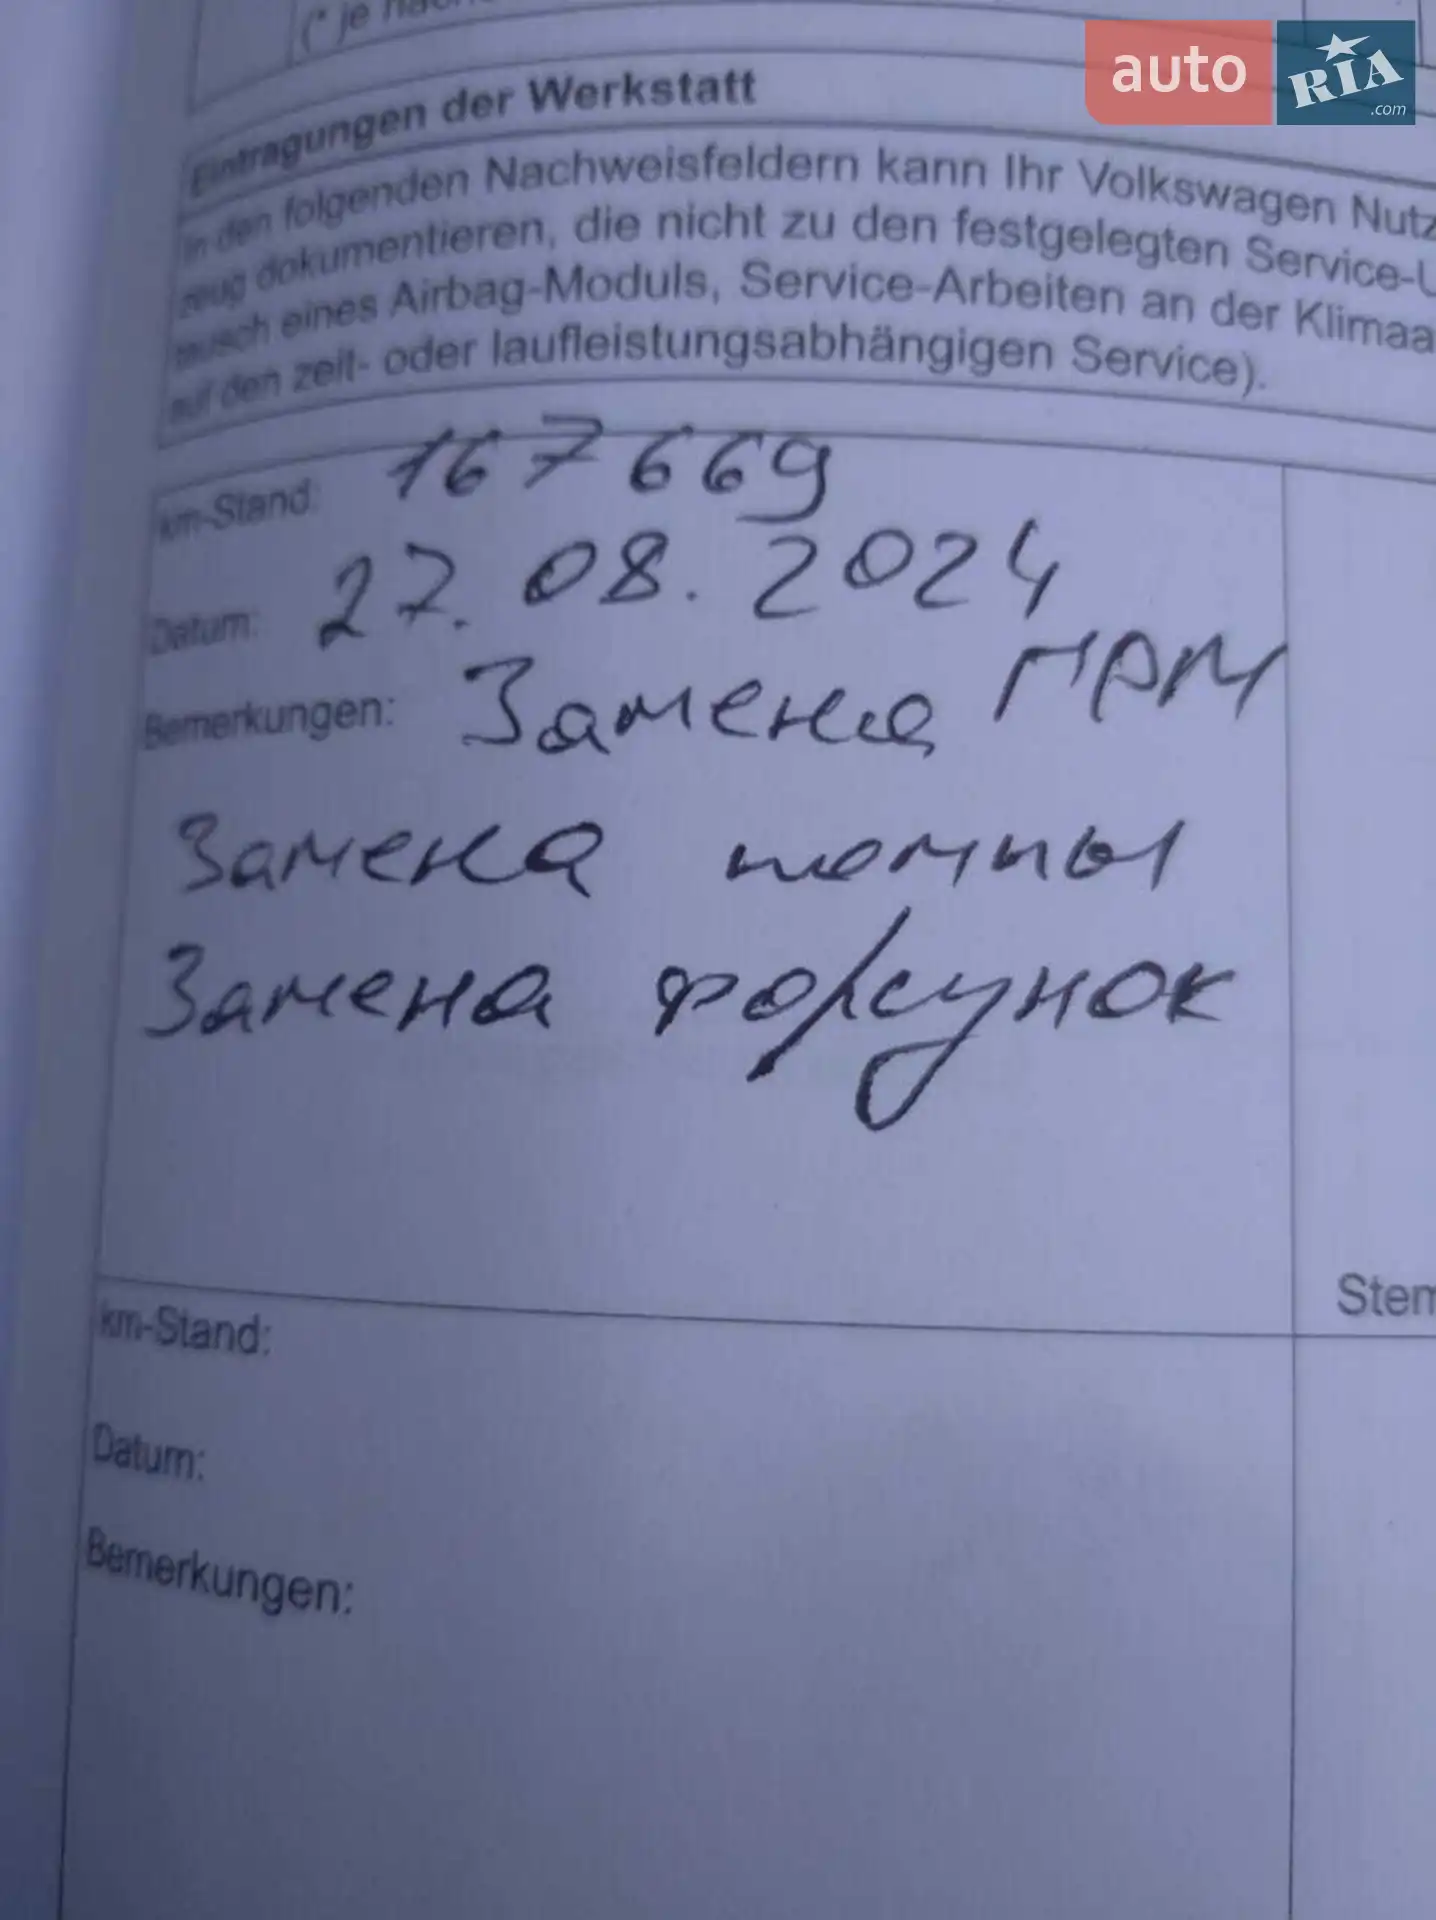 (* je nach
auto RIA .com
Eintragungen der Werkstatt
In den folgenden Nachweisfeldern kann Ihr Volkswagen Nutz
zeug dokumentieren, die nicht zu den festgelegten Service-U
tausch eines Airbag-Moduls, Service-Arbeiten an der Klimaa
auf den zeit- oder laufleistungsabhängigen Service).
km-Stand: 167669
Datum: 27.08.2024
Bemerkungen: Замена ГРМ
Замена помпы
Замена форсунок
Stem
km-Stand:
Datum:
Bemerkungen: